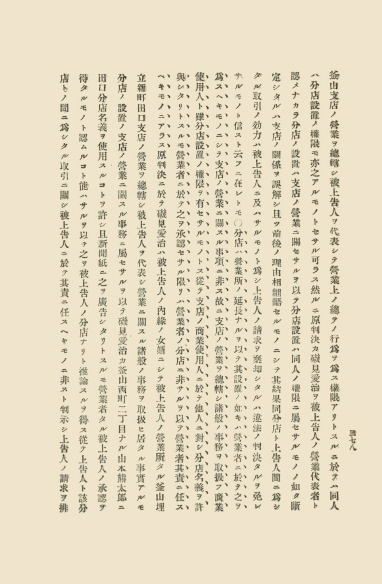 釜山支店ノ營業ヲ總轄シ被上告人ヲ代表シテ營業上ノ總テノ行爲ヲ爲ス權限アリトスルニ於テハ同人
ハ分店設置ノ權限モ亦之アルモノトセサル可ラス然ルニ原判決カ磯見愛治ヲ被上告人ノ營業代表者ト
認メナカラ分店ノ設置ハ支店ノ營業ニ關セサルヲ以テ分店設置ハ同人ノ權限ニ屬セサルモノノ如ク斷
定シタルハ支店ノ關係ヲ誤解シ且ツ前後ノ理由相齟齬セルモノニシテ其結果同分店ト上告人間ニ爲シ
タル取引ノ効力ハ被上告人ニ及ハサルモノト爲シ上告人ノ請求ヲ棄却シタルハ違法ノ判決タルヲ免レ
サルモノト信スト云フニ在レトモ○分店ハ營業所ノ延長ナルヲ以テ其設置ノ如キハ營業者ニ於テ之ヲ
爲スヘキモノニシテ支店ノ營業ニ關スル事項ニ非ス故ニ支店ノ營業ヲ總轄シ諸般ノ事務ヲ取扱フ商業
使用人ト雖分店設置ノ權限ヲ有セサルモノトス從テ支店ノ商業使用人ニ於テ他人ニ對シ分店名義ヲ許
與シタリトスルモ營業者ニ於テ之ヲ承認セサル限リハ營業者ノ分店ニ非サルヲ以テ營業者其責ニ任ス
ヘキモノニアラス原判決ニ於テ磯見愛治ハ被上告人ノ內緣ノ女婿ニシテ被上告人ノ營業所タル釜山埋
立新町田口支店ノ營業ヲ總轄シ被上告人ヲ代表シ營業ニ關スル諸般ノ事務ヲ取扱ヒ居タル事實アルモ
分店ノ設置ノ支店ノ營業ニ關スル事務ニ屬セサルヲ以テ磯見愛治カ釜山西町二丁目ナル山本熊太郎ニ
田口分店名義ヲ使用スルコトヲ許シ且新聞紙ニ之ヲ廣告シタリトスルモ營業者タル被上告人ノ承認ヲ
待タルモノト認ムルコト能ハサルヲ以テ之ヲ被上告人ノ分店ナリト推論スルヲ得ス從テ上告人ト該分
店トノ間ニ爲シタル取引ニ關シ被上告人ニ於テ其責ニ任スヘキモノニ非スト判示シ上告人ノ請求ヲ排